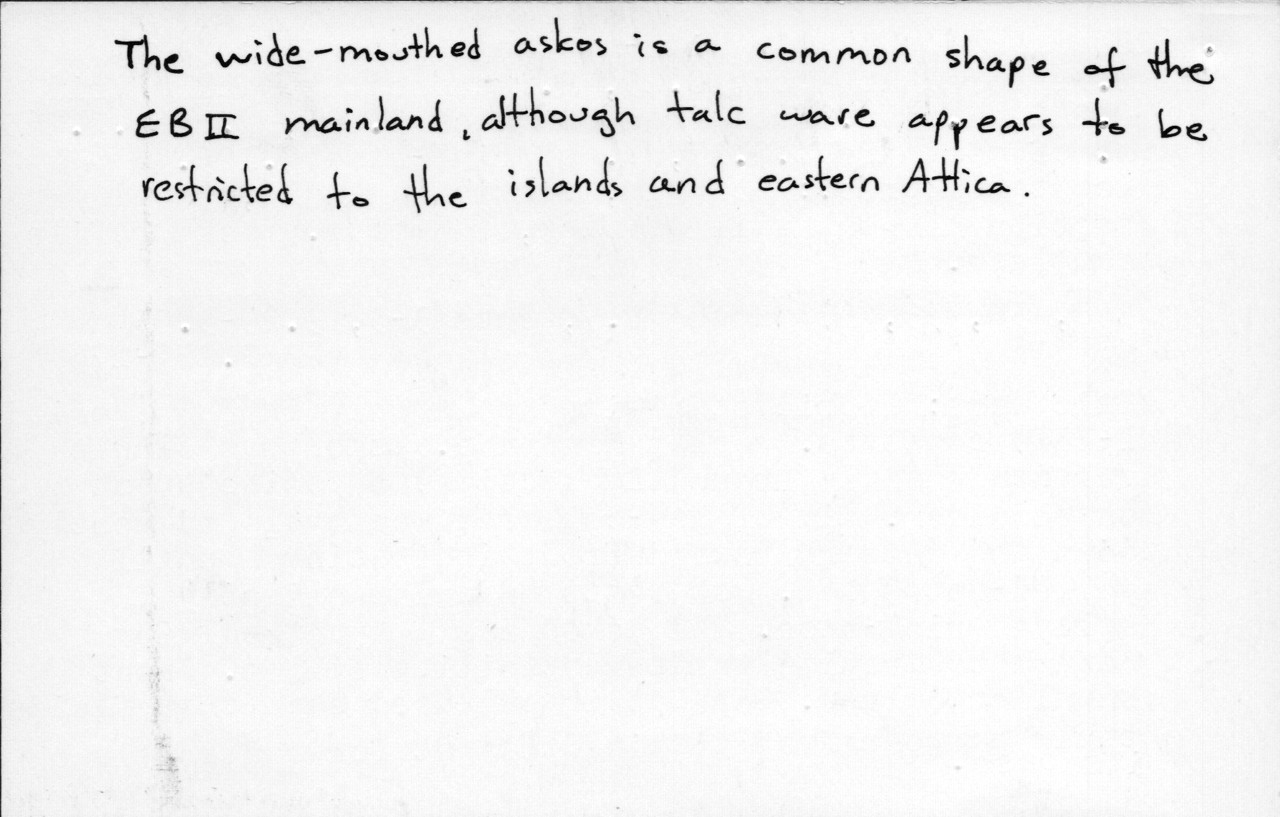 The wide-mouthed askos is a common shape of the
EB II mainland, although talc ware appears to be
restricted to the islands and eastern Attica.